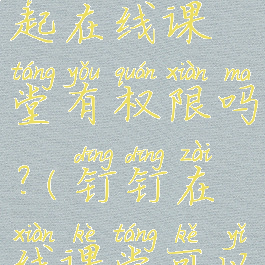 起在线课
táng yǒu quán xiàn ma
堂有权限吗
dīng dīng zài
?(钉钉在
xiàn kè táng kě yǐ
线课堂可以